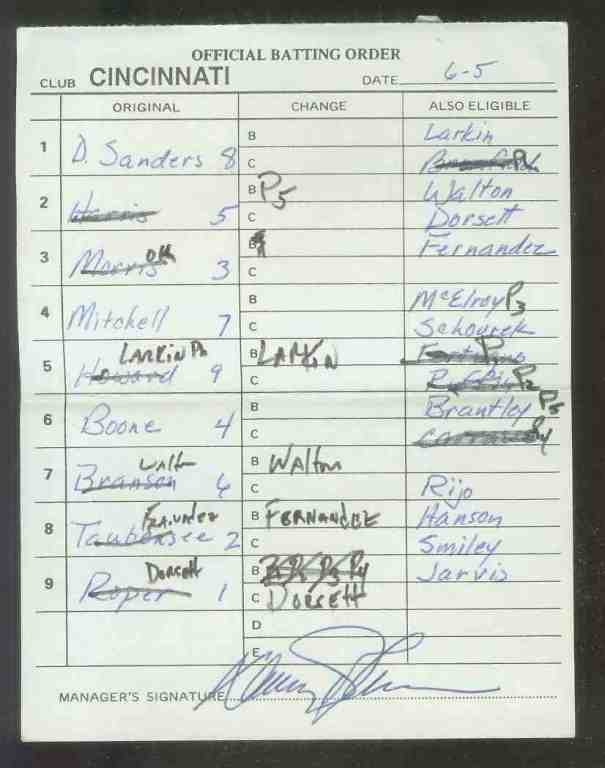 OFFICIAL BATTING ORDER
CLUB CINCINNATI DATE 6-5
ORIGINAL CHANGE ALSO ELIGIBLE
1 D. Sanders 8 B Larkin
C
2 Harris 5 B P5 Walton
C Dorsett
3 Morris 3 B Fernandez
C
4 Mitchell 7 B McElroy P3
C Schourek
LARKIN
5 Howard 9 B LARKIN P1
C Ruffin P2
6 Boone 4 B Brantley P5
C Carrasco P4
Walt
7 Branson 6 B Walton
C Rijo
8 Taubensee 2 B FERNANDEZ Hanson
C Smiley
Dorsett
9 Roper 1 B P3 P4 Jarvis
C DORSETT
D
E
MANAGER'S SIGNATURE